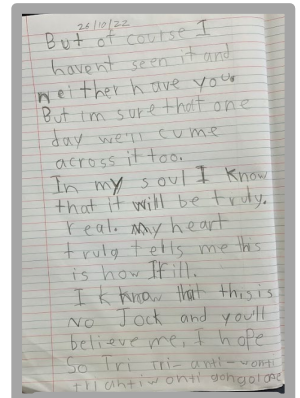 26/10/22
But of course I
havent seen it and
neither have you.
But im sure that one
day we'll cume
across it too.
In my soul I know
that it will be truly.
real. My heart
truly tells me this
is how Ifill.
I k know that this is
No Jock and you'll
believe me, I hope
So Tri Tri-anti-wonti
triantiwontigongolope